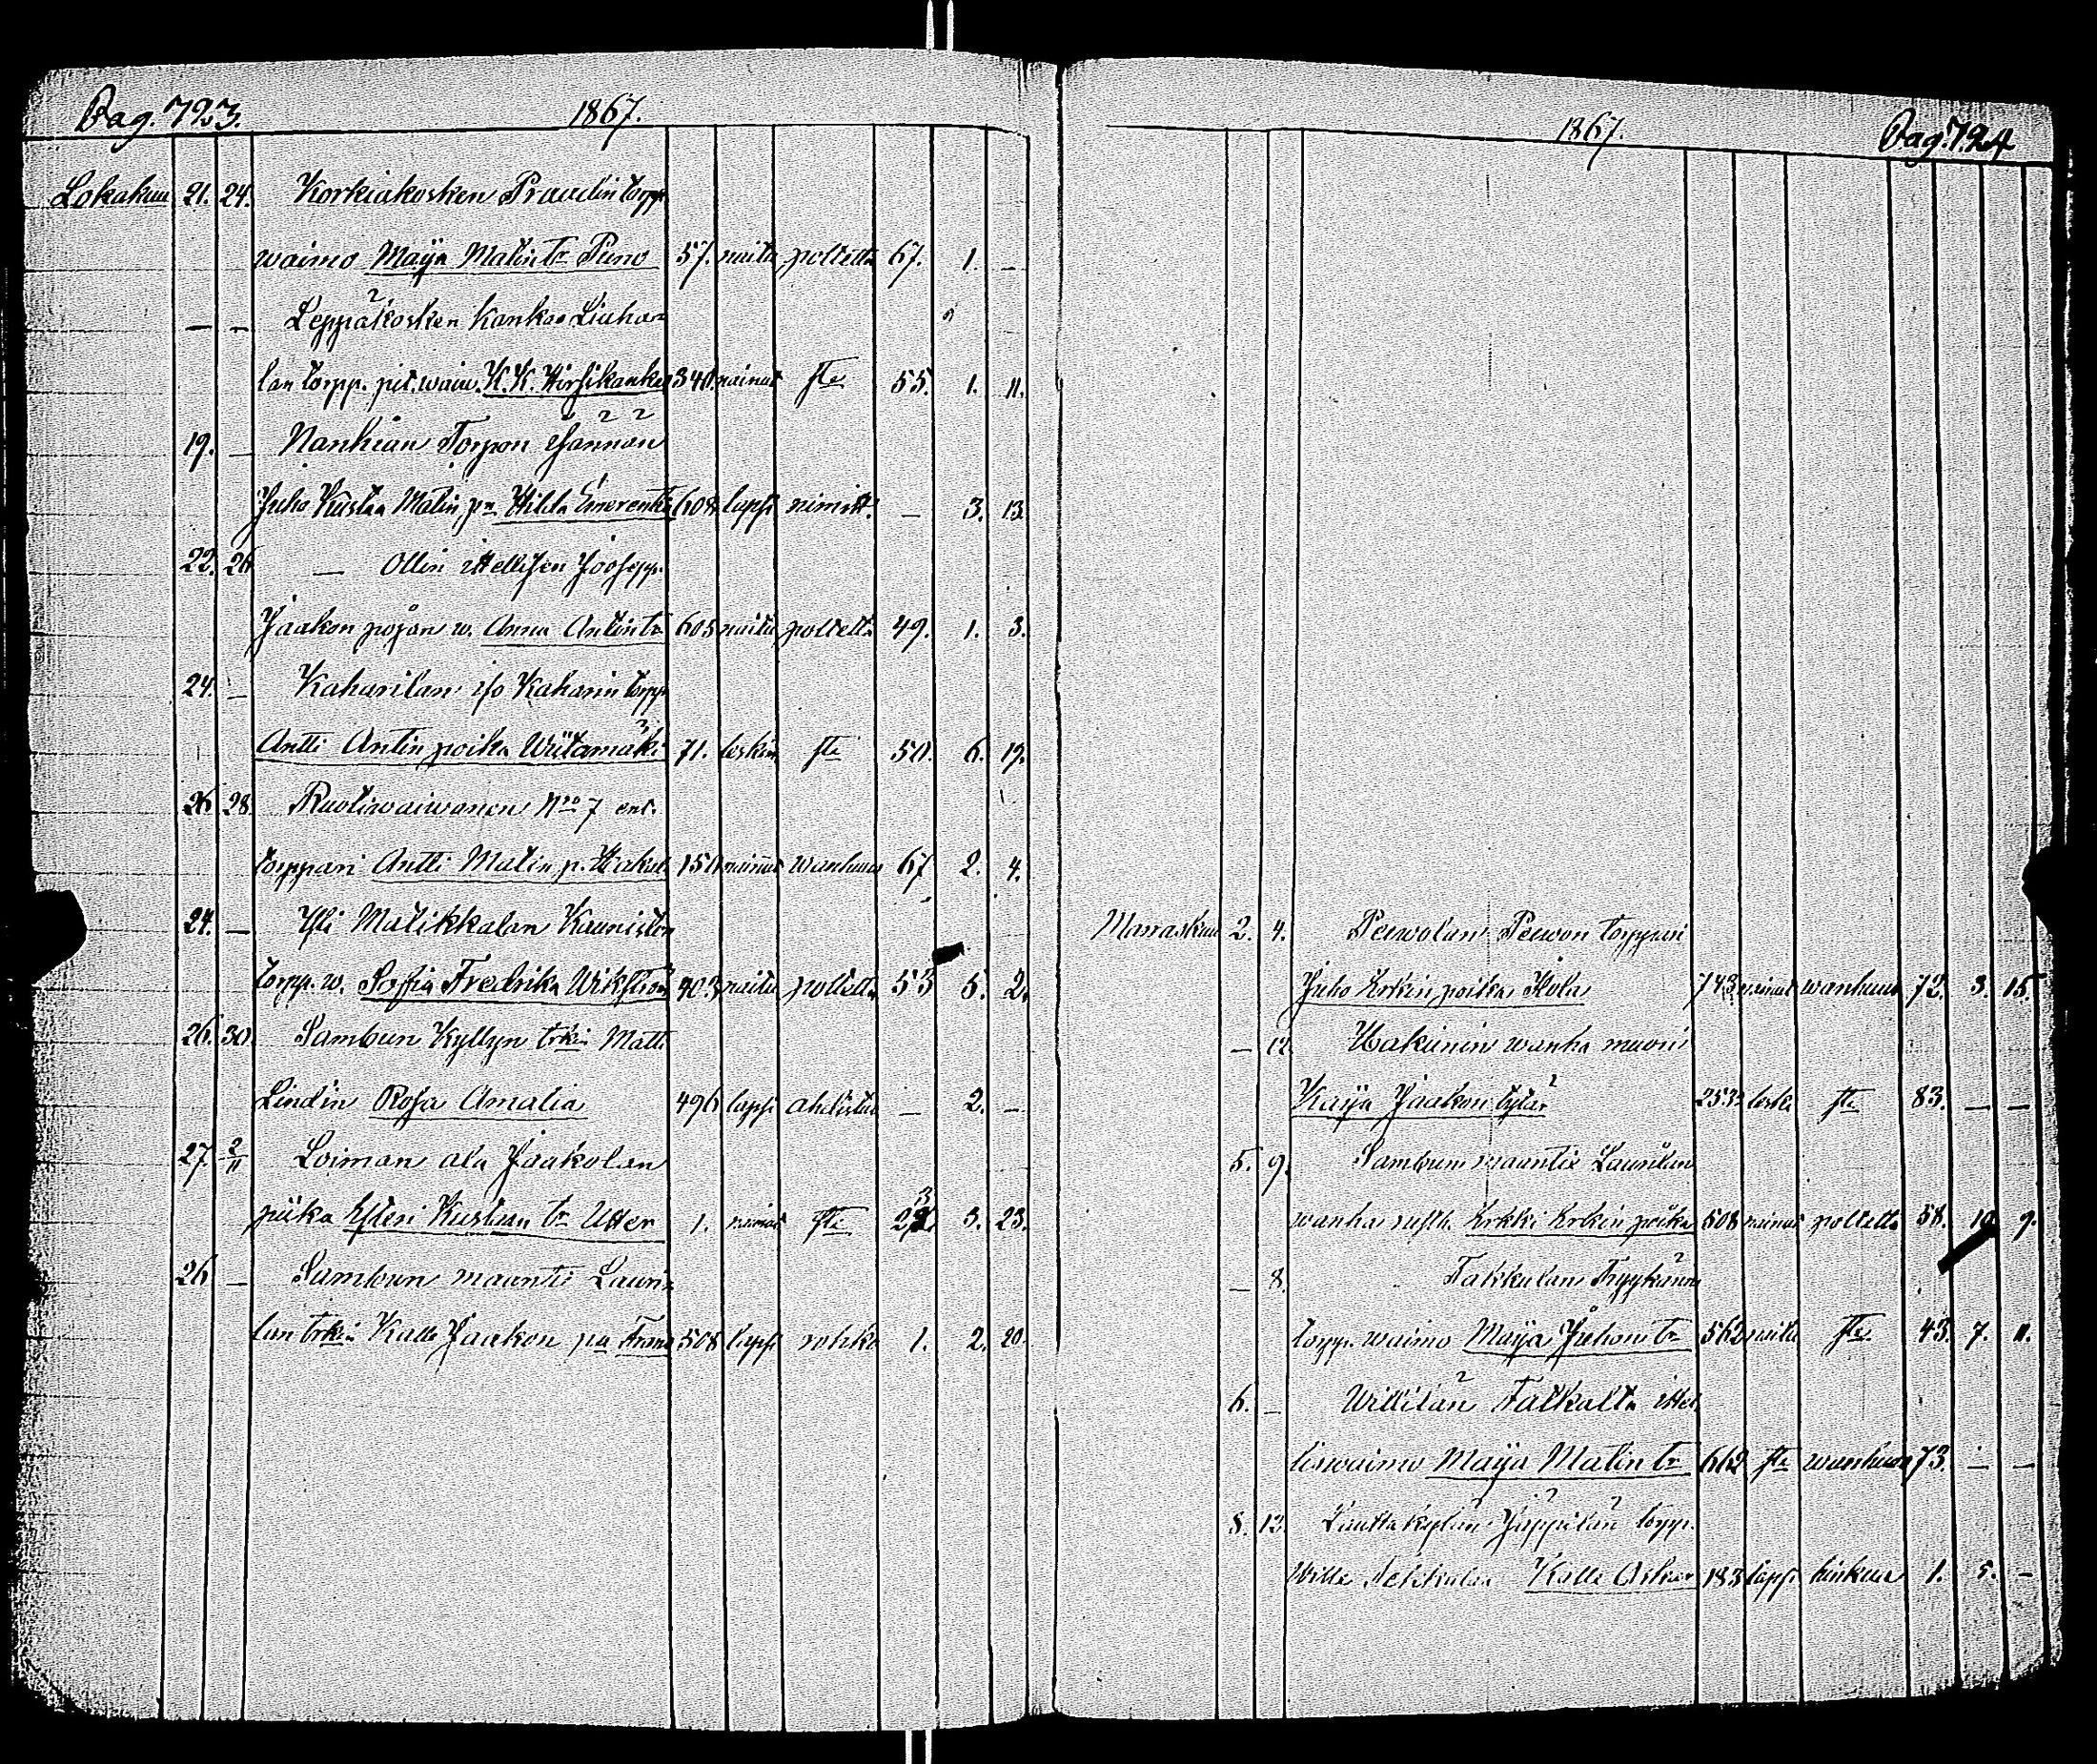 Pag. 723. 1867.
Lokakuu 21. 24. Korkiakosken Praudin torpp
waimo Maija Matin tr Piino 57. naitu poltetta 67. 1. —
— — Leppäkosken Kankas Liuhan
lan torpp. pit. waim. K. K. Hirsikankas 340. nainut ste 55. 1. 11.
19. — Nanhian Torpon Isännän
Juho Kustaa Matin pn Hilda Emerentia 608 lapsi nimitt. — 3. 13.
22. 26 — Ollin itellisen Joosepp
Jaakon pojan w. Anna Antin tr 605 naitu poltetta 49. 1. 3.
24. — Kaharilan iso Kaharin torpp
Antti Antin poika Wiitamäki 71. leskim ste 50. 6. 19.
26 28. Ruotiwaiwanen No 7 ent.
torppari Antti Matin p. Haka 150 nainut wanhuus 67 2. 4.
24. — Yli Matikkalan Kauniston
torpp. w. Sofia Fredrika Wikström 403 naitu poltetta 53 5. 2.
26. 30. Sambun Kyllyn trkin Matti
Lindin Rosa Amalia 496 lapsi ahdistus — 2. —
27. 2/11 Loiman ala Jaakolan
piika Esteri Kustaan tr Utter 1. nainut ste 23 3. 23.
26 — Sambun maantie Lauri
lan trkin Kalle Jaakon pn Frans 508 lapsi rohko 1. 2. 20.
1867. Pag. 724
Marraskuu 2. 4. Peewolan Peewon torppari
Juho Erkin poika Ilola 743 nainut wanhuus 72. 3. 15.
— 12. Hakuinin wanha muori
Kaija Jaakon tytär 253 leski ste 83. — —
5. 9. Sambun maantie Laurilan
wanha rusth. Erkki Erkin poika 508 nainut poltetta 58. 10 9.
— 8. Takkulan Fryykmän
torpp. waimo Maija Juhon tr 562 naitu ste 43. 7. 11.
6. — Willilän Talkalta itel
liswaimo Maija Matin tr 662 ste wanhuus 73. — —
8. 12. Lauttakylän Jäppilän torpp.
Wille Kalle Oskar 183 lapsi hinkuu 1. 5. —